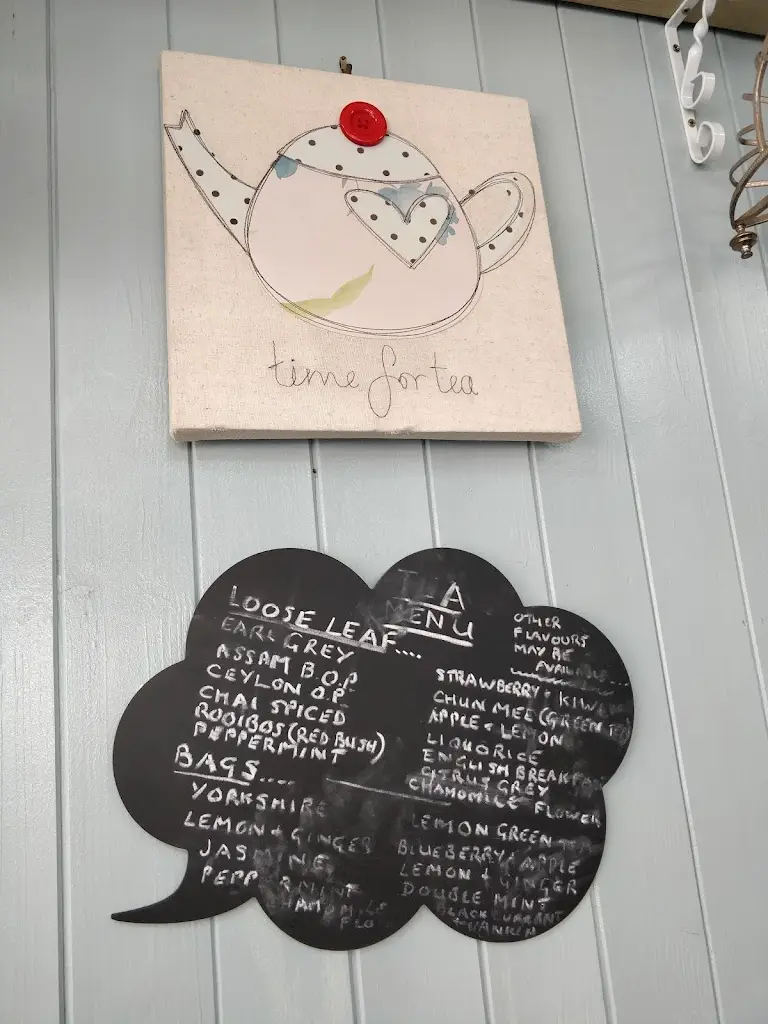 time for tea
TEA
MENU
LOOSE LEAF....
EARL GREY
ASSAM B.O.P
CEYLON O.P
CHAI SPICED
ROOIBOS (RED BUSH)
PEPPERMINT
OTHER
FLAVOURS
MAY BE
AVAILABLE....
STRAWBERRY + KIWI
CHUN MEE (GREEN TEA)
APPLE + LEMON
LIQUORICE
ENGLISH BREAKFAST
CITRUS GREY
CHAMOMILE FLOWER
BAGS....
YORKSHIRE
LEMON + GINGER
JASMINE
PEPPERMINT
CHAMOMILE
FLO
LEMON GREEN TEA
BLUEBERRY + APPLE
LEMON + GINGER
DOUBLE MINT
BLACKCURRANT